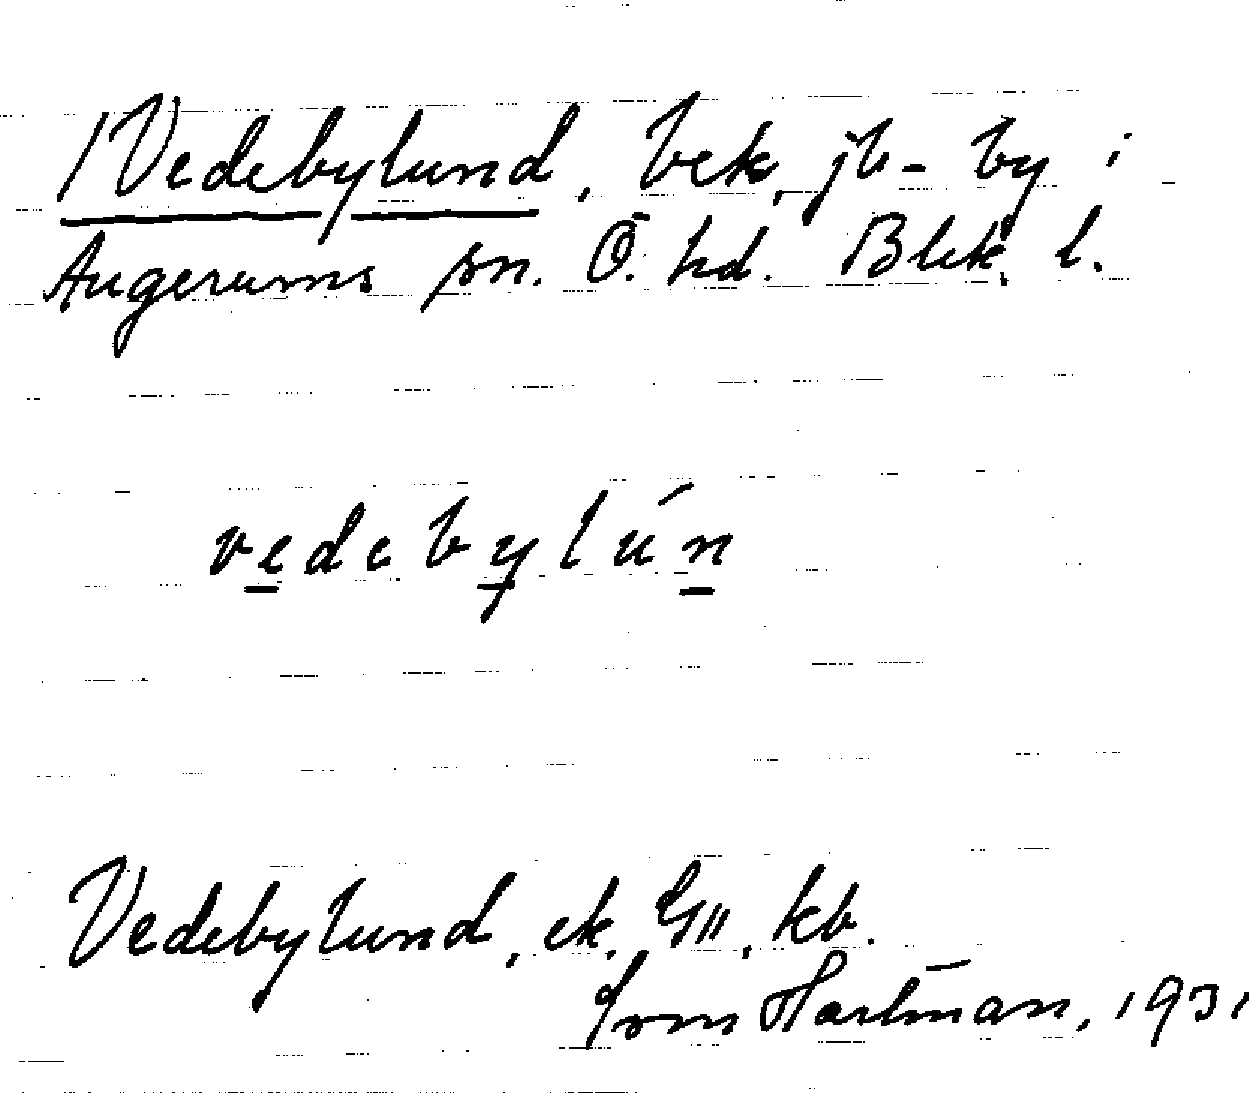 /Vedebylund, bek, jb-by i
Augerums sn. Ö. hd. Blek. l.
vedebylún
Vedebylund, ek. GII, kb.
Hartman, 1931